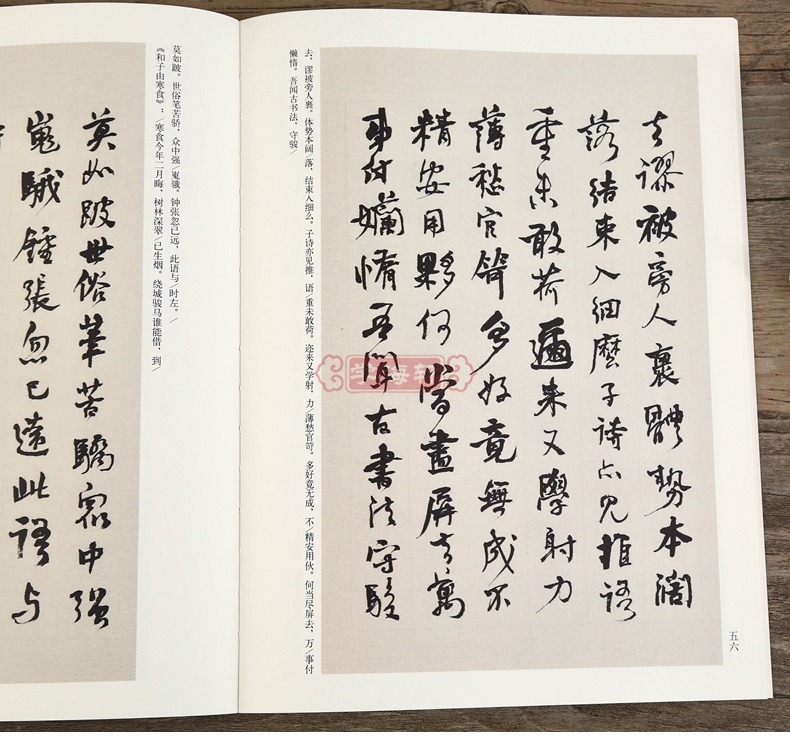 去谬被旁人裹體勢本闊
落结束入细麽子诗亦見推语
重未敢荷迩来又學射力
薄愁官笴多好竟無成不
精安用夥何當盡屏去萬
事付嬾惰吾聞古書法守駿
去，谬被旁人裹。体势本阔/落，结束入细么。子诗亦见推，语/重未敢荷。迩来又学射，力/薄愁官笴。多好竟无成，不/精安用伙。何当尽屏去，万/事付
懒惰。吾闻古书法，守骏/
五六
學海軒
莫如跛世俗筆苦驕衆中强
嵬騀鍾張忽已遠此语与
莫如跛。世俗笔苦骄，众中强/嵬騀。钟张忽已远，此语与/时左。/
《和子由寒食》：/寒食今年二月晦，树林深翠/已生烟。绕城骏马谁能借，到/